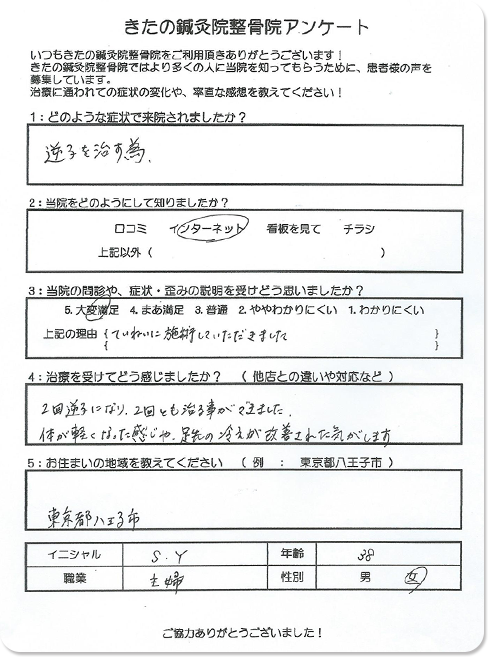 きたの鍼灸院整骨院アンケート
いつもきたの鍼灸院整骨院をご利用頂きありがとうございます！
きたの鍼灸院整骨院ではより多くの人に当院を知ってもらうために、患者様の声を
募集しています。
治療に通われての症状の変化や、率直な感想を教えてください！
1：どのような症状で来院されましたか？
逆子を治す為、
2：当院をどのようにして知りましたか？
口コミ インターネット 看板を見て チラシ
上記以外（ ）
3：当院の問診や、症状・歪みの説明を受けどう思いましたか？
5. 大変満足 4. まあ満足 3. 普通 2. ややわかりにくい 1. わかりにくい
上記の理由 { ていねいに施術していただきました }
{ }
4：治療を受けてどう感じましたか？ （他店との違いや対応など）
2回逆子になり、2回とも治る事ができました。
体が軽くなった感じや、足先の冷えが改善された気がします
5：お住まいの地域を教えてください （例 ： 東京都八王子市）
東京都八王子市
イニシャル S.Y 年齢 38
職業 主婦 性別 男 女
ご協力ありがとうございました！